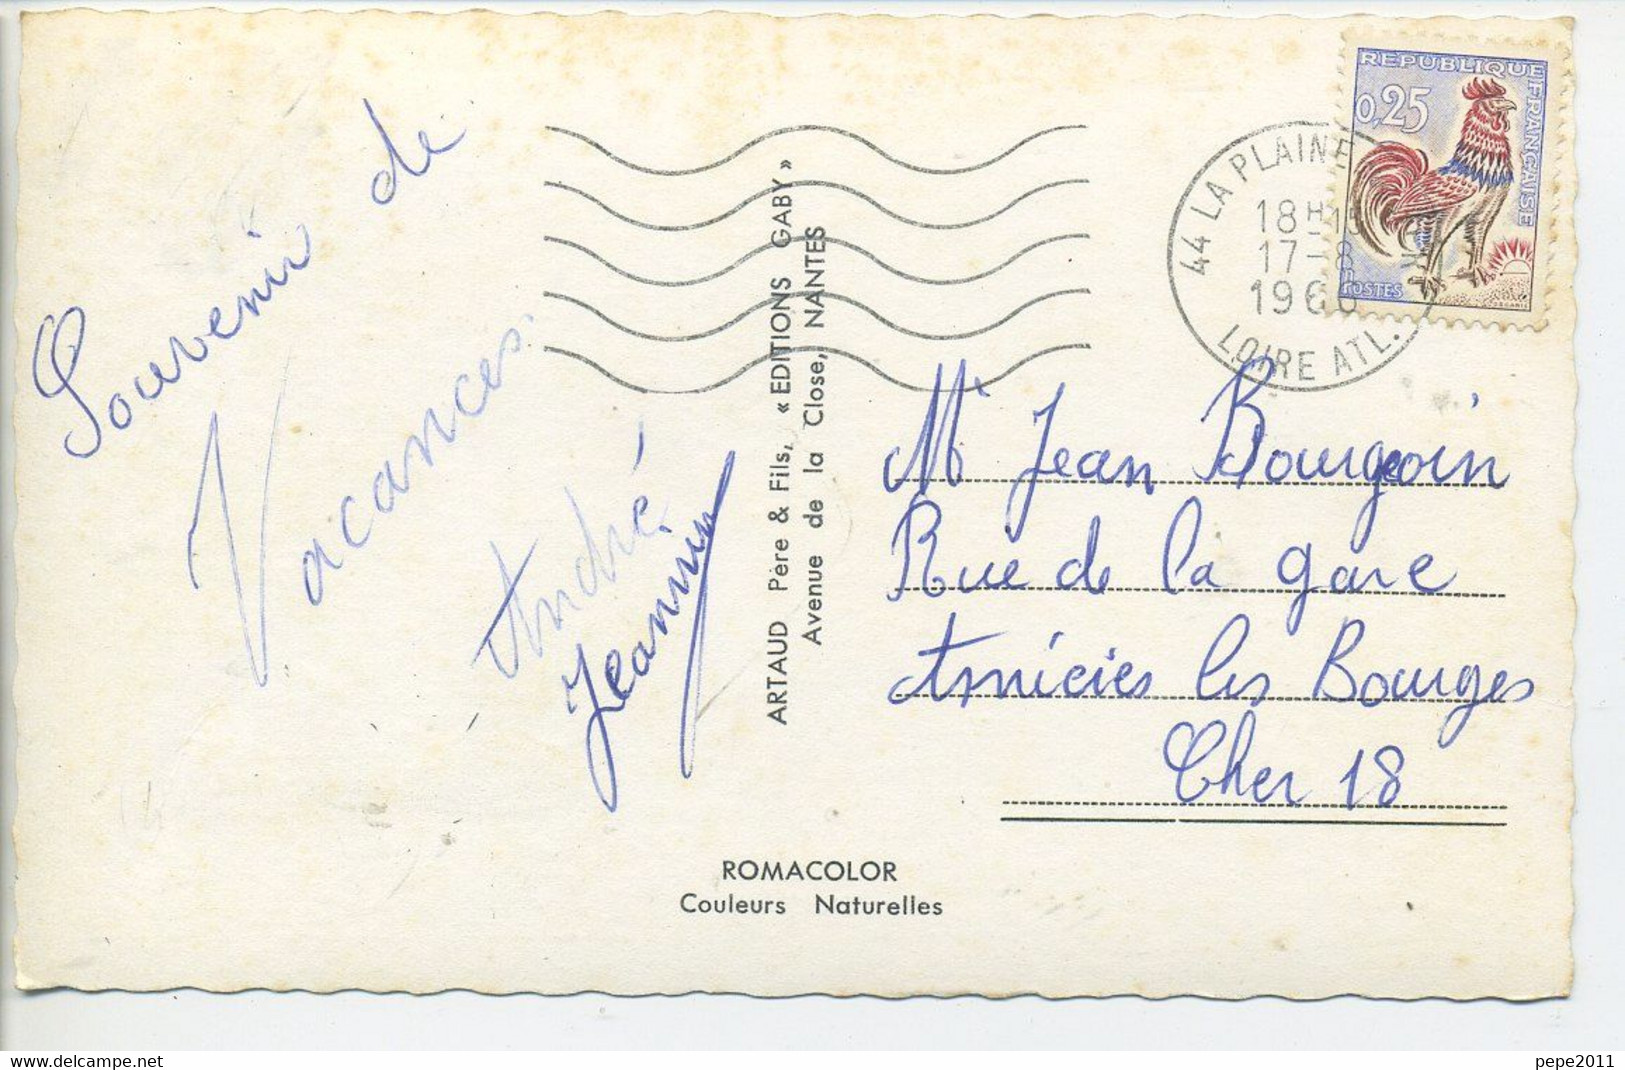 Souvenir de
Vacances.
André
Jeannin
ARTAUD Père & Fils, « EDITIONS GABY »
Avenue de la Close, NANTES
REPUBLIQUE FRANÇAISE
0,25
POSTES
44 LA PLAINE
18H15
17-8
196
LOIRE ATL.
Mr Jean Bourgeoin
Rue de la gare
les Bourges
Cher 18
ROMACOLOR
Couleurs Naturelles
pepe2011